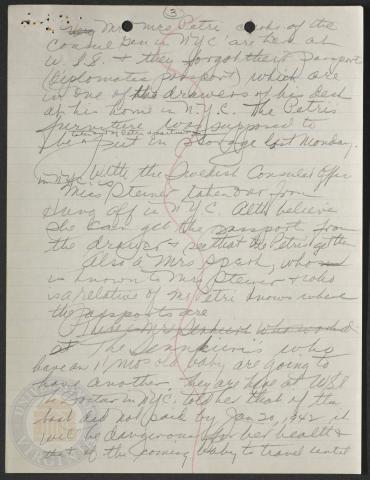 (3)
Mr + Mrs Petri clerks of the
Consul Gen in NYC are here at
W.S.S. + they forgot their passport
(diplomatic passport) which are
in one of the drawers of his desk
at his home in N.Y.C. The Petris
furniture was supposed to
be put in storage last Monday.
With the Swedish Consulate Office
in NYC is
Miss Steiner taken over from
Hung Off in N.Y.C. Alth believe
she can get the passport from
the drawer + that the Petris get them
Also a Mrs Spark, who
is known to Mrs Steiner + who
is a relative of Mr Petri knows where
the passports are
There's Mrs who worked
at The who
have an 11 mos old baby are going to
have another. They are here at WSS
in NYC. told her that if the
boat did not sail by Jan 20, 1942 it
will be dangerous for her health +
that of the coming baby to travel until